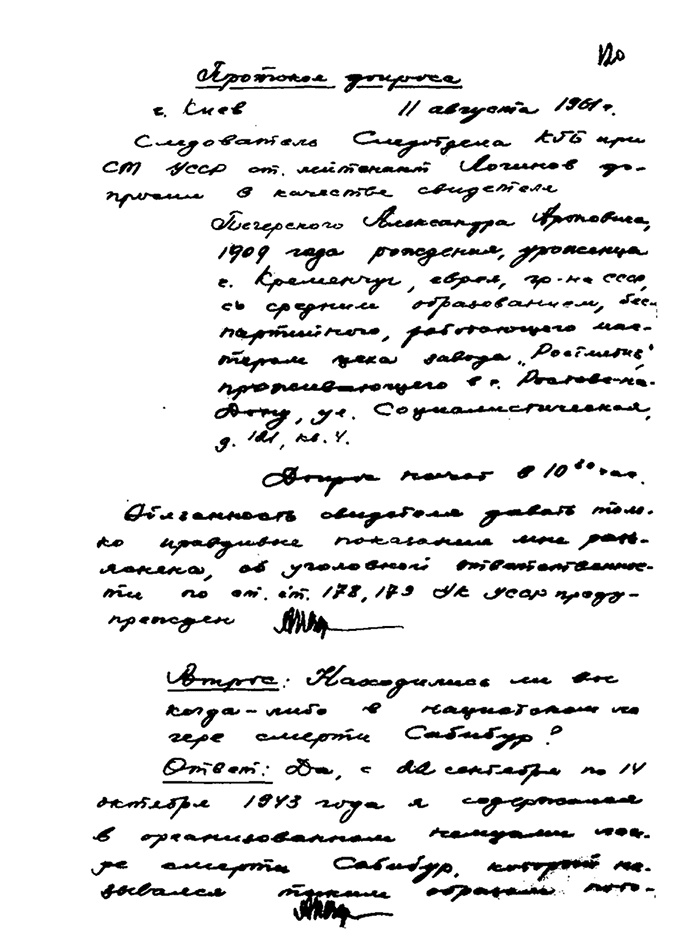 120
Протокол допроса
г. Киев 11 августа 1961 г.
Следователь Следотдела КГБ при
СМ УССР ст. лейтенант Логинов до-
просил в качестве свидетеля
Печерского Александра Ароновича,
1909 года рождения, уроженца
г. Кременчуг, еврея, гр-на СССР,
со средним образованием, бес-
партийного, работающего мас-
тером цеха завода "Ростметиз",
проживающего в г. Ростове-на-
Дону, ул. Социалистическая,
д. 121, кв. 4.
Допрос начат в 10 час.
Обязанность свидетеля давать толь-
ко правдивые показания мне разъ-
яснена, об уголовной ответственнос-
ти по ст. ст. 178, 179 УК УССР преду-
прежден
Вопрос: Находились ли вы
когда-либо в нацистском ла
гере смерти Сабибур?
Ответ: Да, с 22 сентября по 14
октября 1943 года я содержался
в организованном немцами лаге-
ре смерти Сабибур, который на-
зывался таким образом пото-